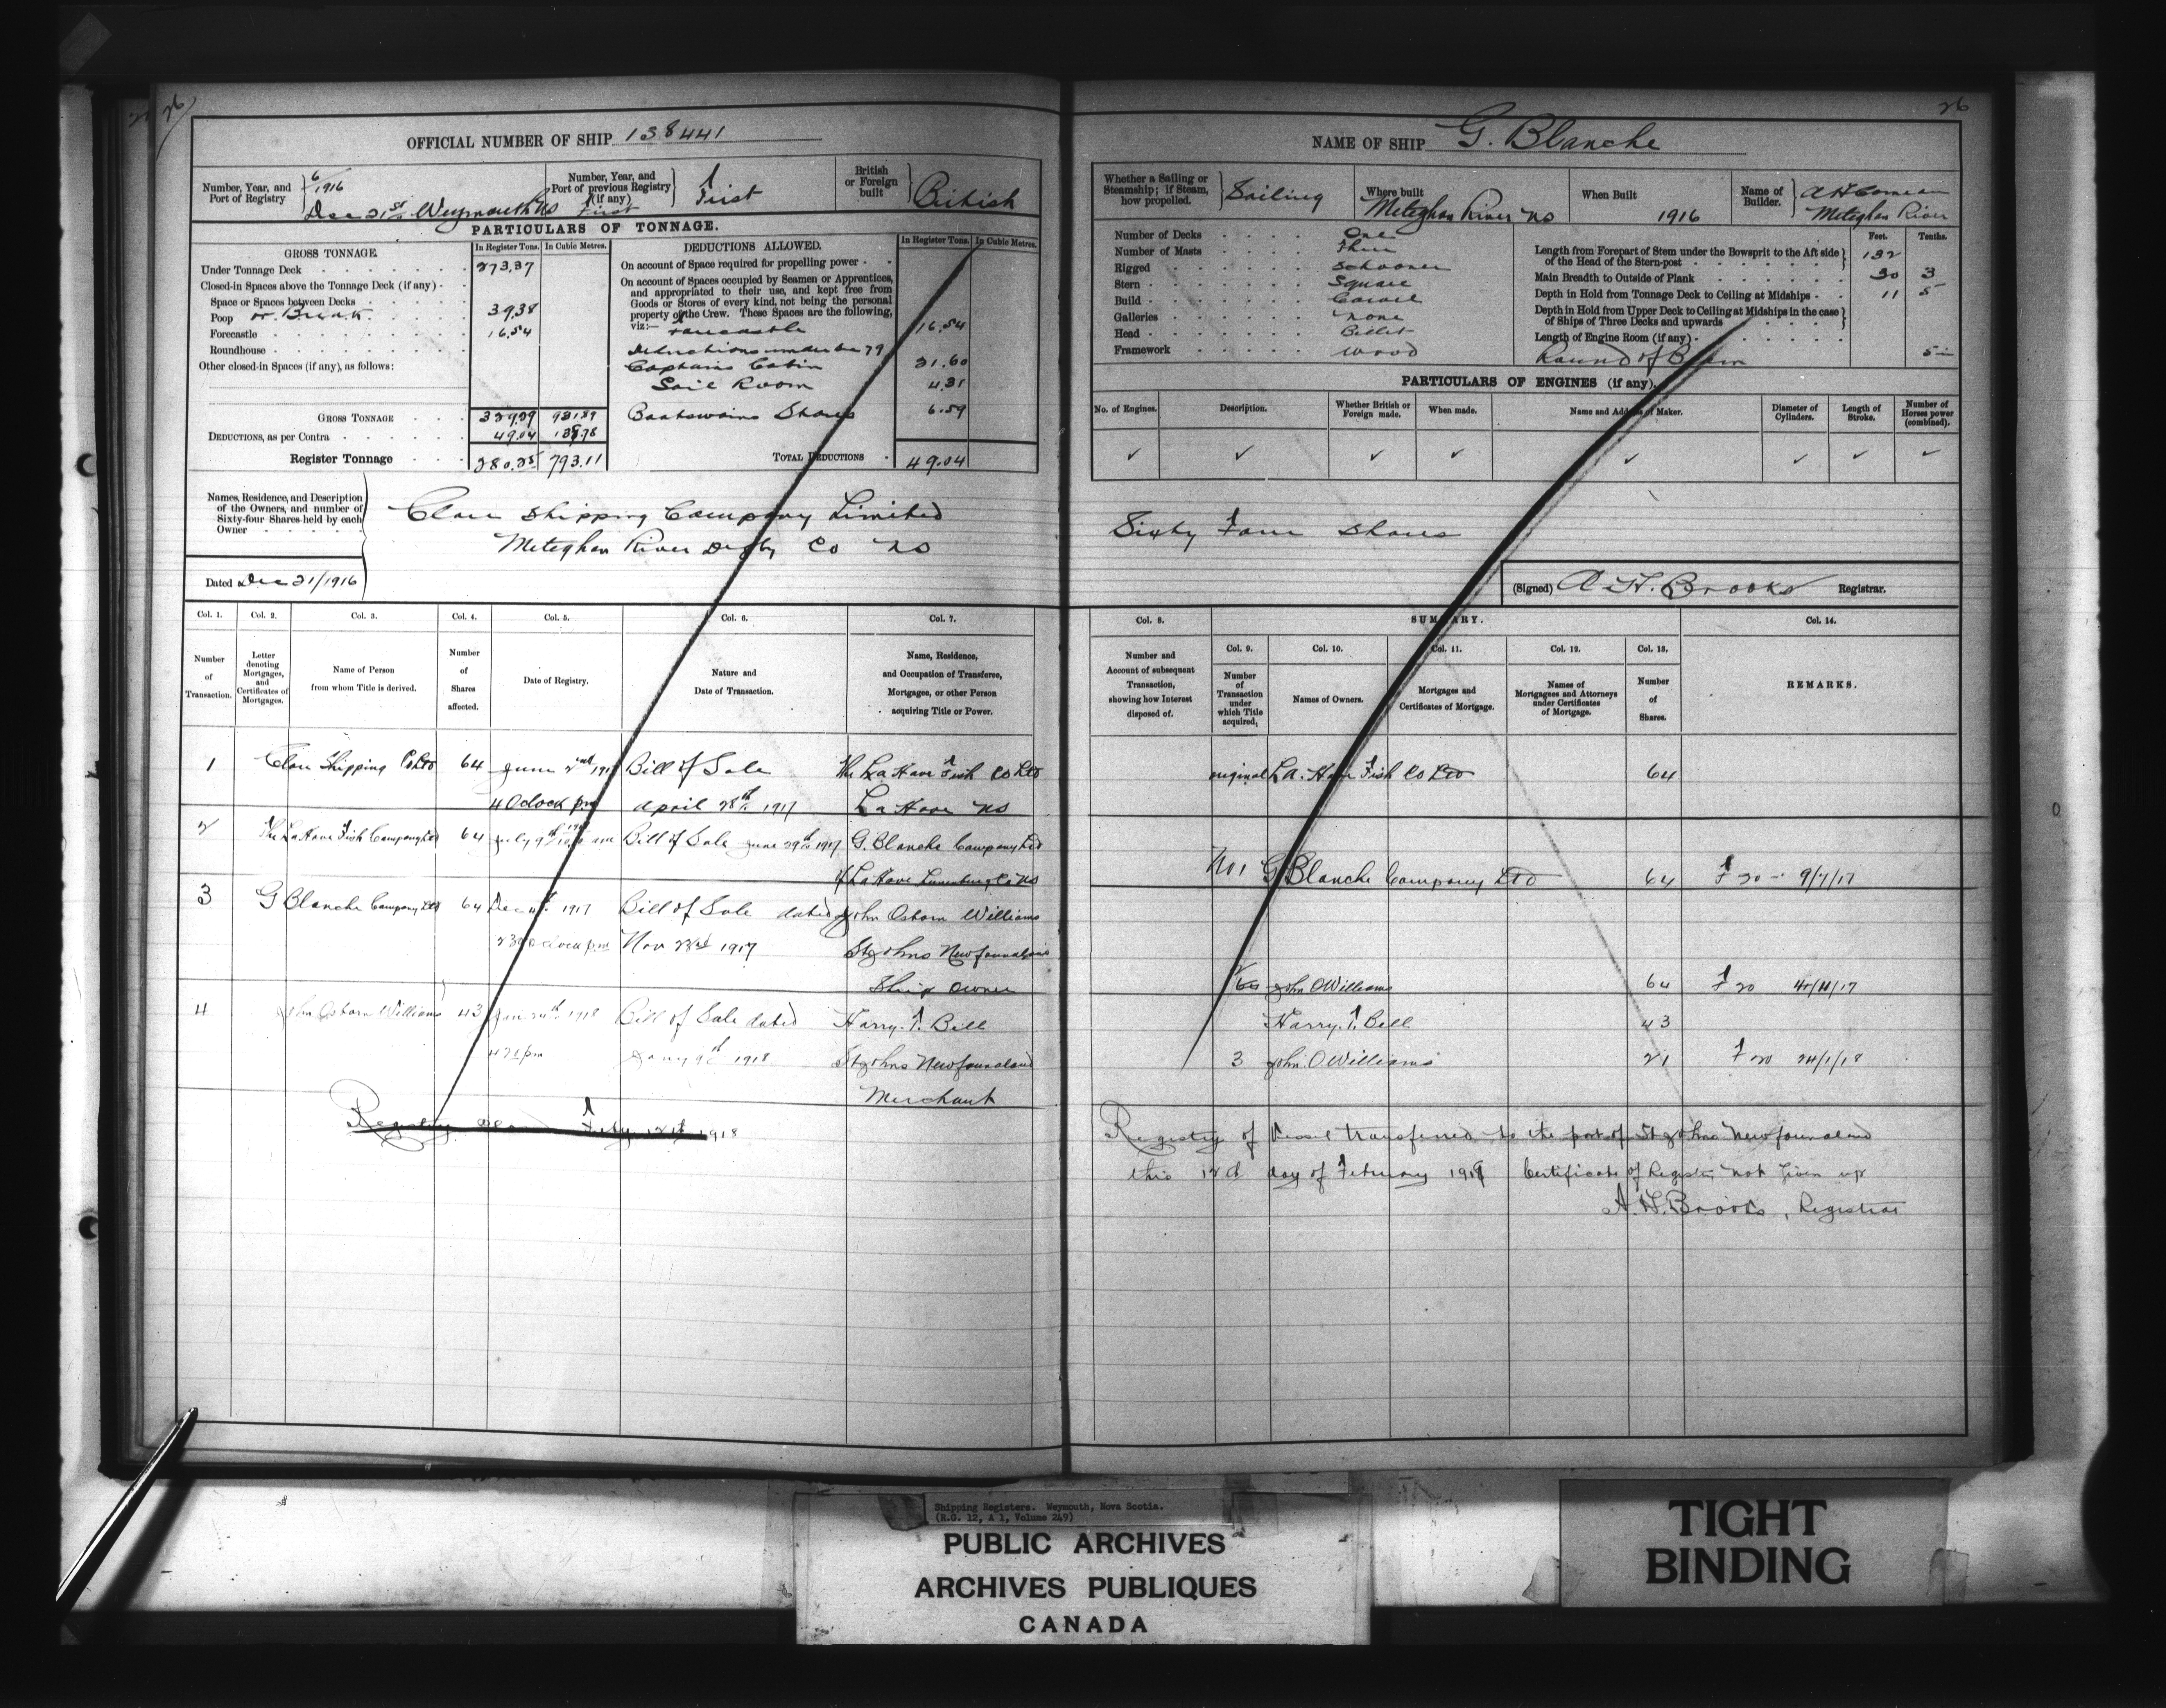 26
26
OFFICIAL NUMBER OF SHIP 138441
NAME OF SHIP G. Blanche
Number, Year, and Port of Registry
6/1916
Dec 21st Weymouth NS
Number, Year, and Port of previous Registry (if any)
First
First
British or Foreign built
British
PARTICULARS OF TONNAGE.
GROSS TONNAGE
In Register Tons.
In Cubic Metres.
Under Tonnage Deck 273.37
Closed-in Spaces above the Tonnage Deck (if any)
Space or Spaces between Decks
Poop or Break 39.38
Forecastle 16.54
Roundhouse
Other closed-in Spaces (if any), as follows:
GROSS TONNAGE 329.29 931.89
DEDUCTIONS, as per Contra 49.04 138.78
Register Tonnage 280.25 793.11
DEDUCTIONS ALLOWED.
In Register Tons.
In Cubic Metres.
On account of Space required for propelling power
On account of Spaces occupied by Seamen or Apprentices,
and appropriated to their use, and kept free from
Goods or Stores of every kind, not being the personal
property of the Crew. These Spaces are the following,
viz:— 16.54
Deductions under Sec 79
Captains Cabin 21.60
Sail Room 4.31
Boatswains Stores 6.59
TOTAL DEDUCTIONS 49.04
Whether a Sailing or Steamship; if Steam, how propelled.
Sailing
Where built
Meteghan River NS
When Built
1916
Name of Builder.
A H Comeau
Meteghan River
Number of Decks One
Number of Masts Three
Rigged Schooner
Stern Square
Build Carvel
Galleries none
Head Billet
Framework Wood
Feet. Tenths.
Length from Forepart of Stem under the Bowsprit to the Aft side of the Head of the Stern-post 132
Main Breadth to Outside of Plank 30 3
Depth in Hold from Tonnage Deck to Ceiling at Midships 11 5
Depth in Hold from Upper Deck to Ceiling at Midships in the case of Ships of Three Decks and upwards
Length of Engine Room (if any)
Round of Beam 5 in
PARTICULARS OF ENGINES (if any).
No. of Engines.
Description.
Whether British or Foreign made.
When made.
Name and Address of Maker.
Diameter of Cylinders.
Length of Stroke.
Number of Horses power (combined).
Names, Residence, and Description
of the Owners, and number of
Sixty-four Shares held by each
Owner
Clare Shipping Company Limited
Meteghan River Digby Co NS
Sixty Four Shares
Dated Dec 21/1916
(Signed) A. H. Brooks Registrar.
Col. 1. Col. 2. Col. 3. Col. 4. Col. 5. Col. 6. Col. 7.
Number of Transaction.
Letter denoting Mortgages, and Certificates of Mortgages.
Name of Person from whom Title is derived.
Number of Shares affected.
Date of Registry.
Nature and Date of Transaction.
Name, Residence, and Occupation of Transferee, Mortgagee, or other Person acquiring Title or Power.
Col. 8. SUMMARY. Col. 14.
Col. 9. Col. 10. Col. 11. Col. 12. Col. 13.
Number and Account of subsequent Transaction, showing how Interest disposed of.
Number of Transaction under which Title acquired,
Names of Owners.
Mortgages and Certificates of Mortgage.
Names of Mortgagees and Attorneys under Certificates of Mortgage.
Number of Shares.
REMARKS.
1 Clare Shipping Co Ltd 64 June 2nd 1917 Bill of Sale The La Have Fish Co Ltd
4 Oclock pm April 28th 1917 La Have NS
2 The La Have Fish Company Ltd 64 July 9th am Bill of Sale June 29th 1917 G. Blanche Company Ltd
of La Have Lunenburg Co NS
3 G Blanche Company Ltd 64 Dec 4th 1917 Bill of Sale dated John Osborn Williams
2 30 oclock pm Nov 23rd 1917 St Johns Newfoundland
Ship Owner
4 John Osborn Williams 43 Jan 24th 1918 Bill of Sale dated Harry. F. Bell
pm Jany 9th 1918 St Johns Newfoundland
Merchant
Registry Feby 12th 1918
original La Have Fish Co Ltd 64
No 1 G Blanche Company Ltd 64 F 20 - 9/7/17
2 John O Williams 64 F 20
Harry. F. Bell 43
3 John. O Williams 21 F 20 24/1/18
Registry of Vessel transferred to the port of St Johns Newfoundland
this 12th day of February 1918 Certificate of Registry not given up
A. H. Brooks, Registrar
Shipping Registers. Weymouth, Nova Scotia.
(R.G. 12, A 1, Volume 249)
PUBLIC ARCHIVES
ARCHIVES PUBLIQUES
CANADA
TIGHT
BINDING